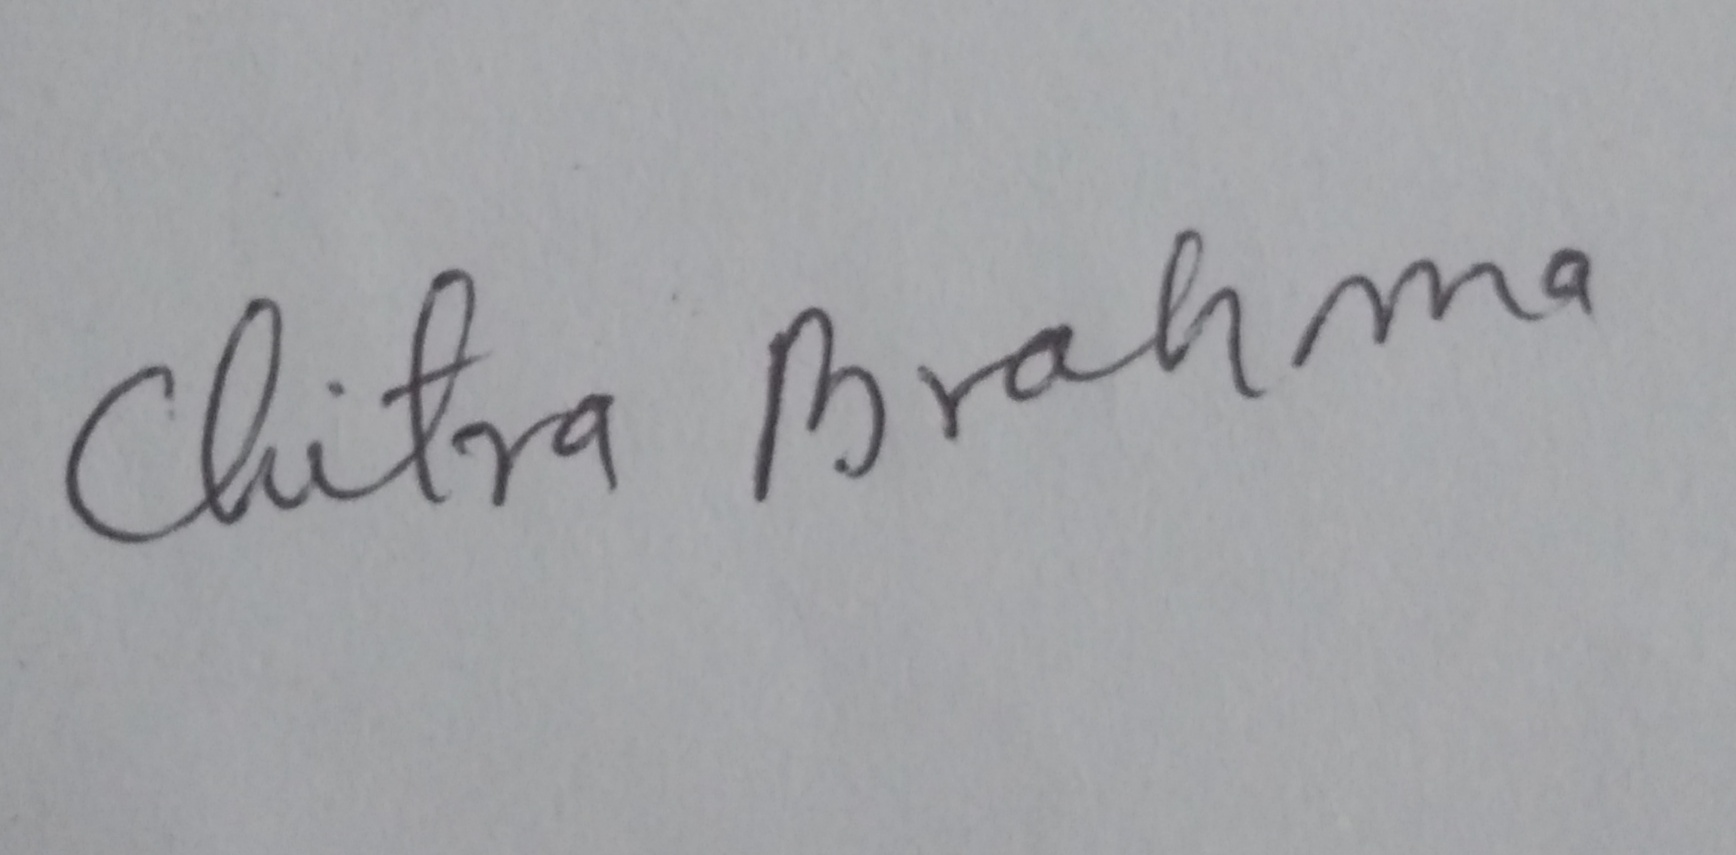 Chitra Brahma